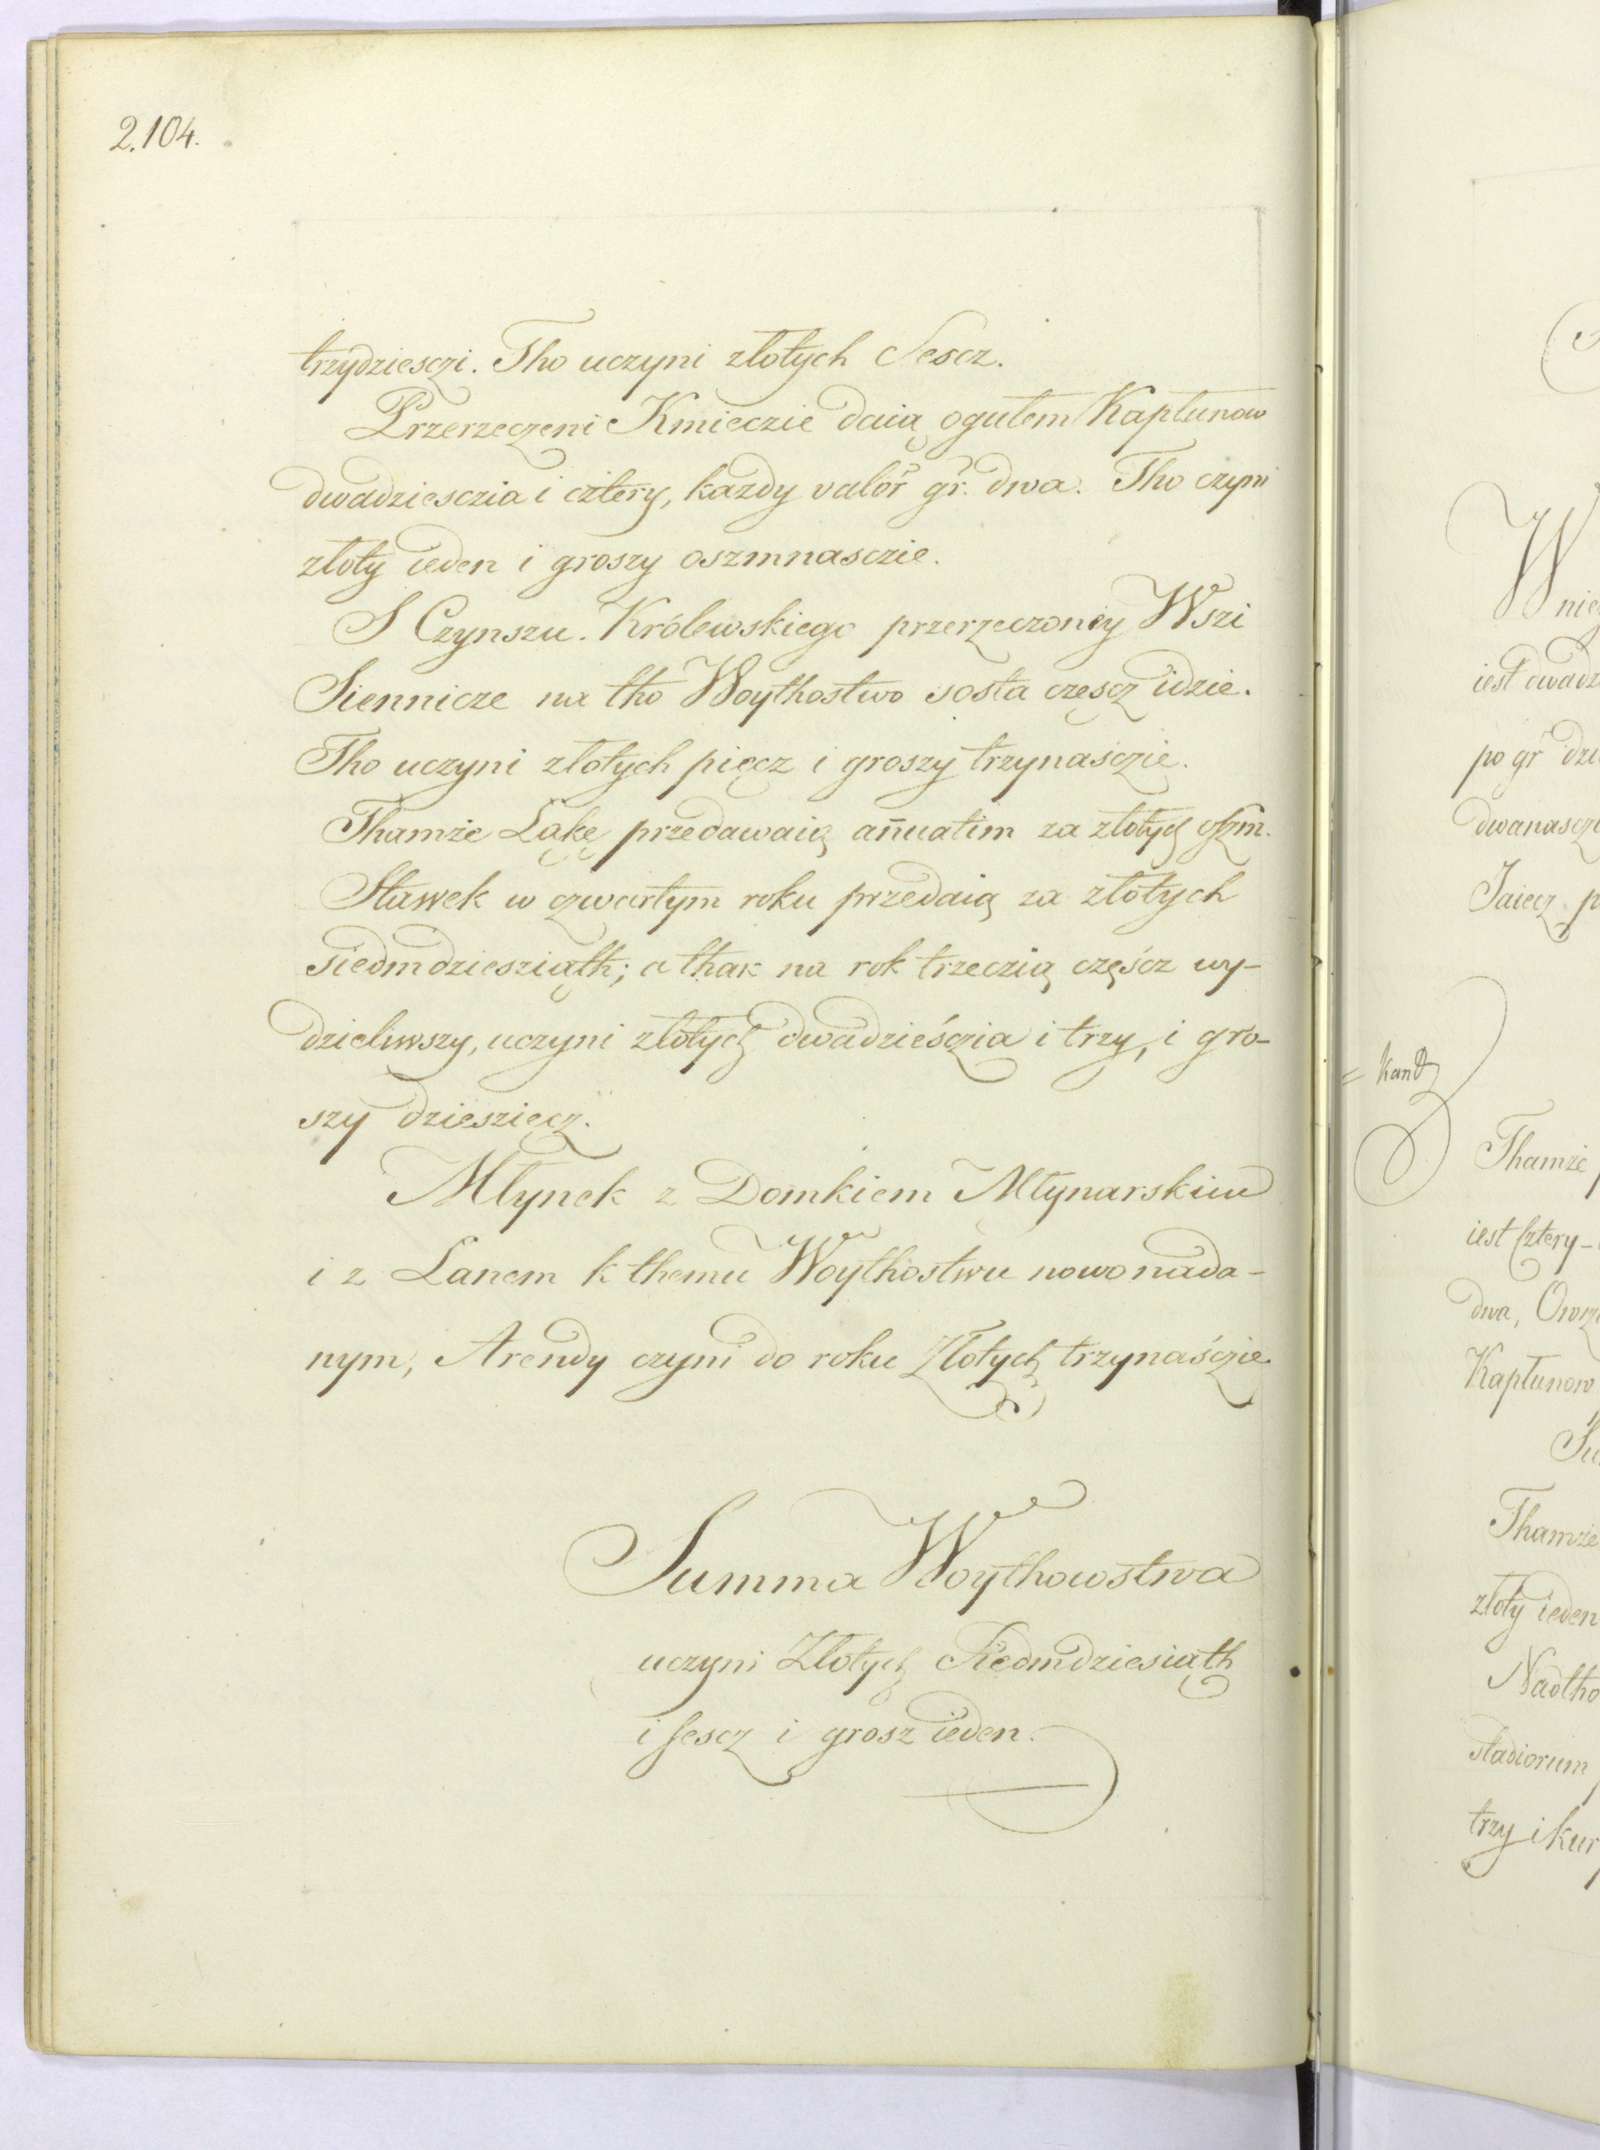 2.104.
trzydziesczi. Tho uczyni złotych Sescz.
Przerzeczeni Kmieczie daią ogułem Kapłunow
dwadziesczia i cztery, kazdy valor gr. dwa. Tho czyni
złoty ieden i groszy oszmnasczie.
S Czynszu. Królewskiego przerzeczoney Wszi
Siennicze na tho Woythostwo sosta częscz idzie.
Tho uczyni złotych pięcz i groszy trzynasczie.
Thamże Łąkę przedawaią añuatim za złotych oszm.
Stawek w czwartym roku przedaią za złotych
siedmdziesziąth; a thak na rok trzeczią częścz wy-
dzieliwszy, uczyni złotych dwadzieśczia i trzy, i gro-
szy dziesziącz.
Młynek z Domkiem Młynarskim
i z Łanem k themu Woythostwu nowo nada-
nym, Arendy czyni do roku Złotych trzynaśczie.
Summa Woythowstwa
uczyni Złotych Siedmdziesiąth
i sescz i grosz ieden.
W nie
iest dwadz
po gr dzi
dwanascz
Jaiecz p
= kand
Thamże
iest Cztery-
dwa, Owrz
Kapłunow
Su
Thamże
złoty ieden
Nadtho
stadiorum
trzy i kur